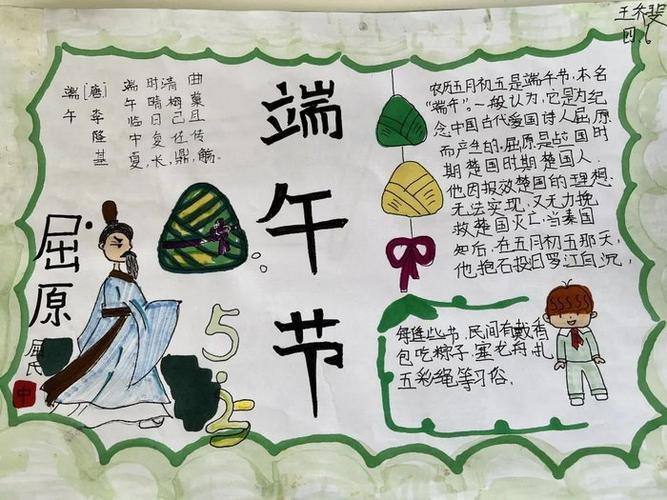 王乔斐
四.6
端午
[唐]李隆基
端午临中夏,
时晴日复长,
端午节
农历五月初五是端午节,本名
"端午",一般认为,它是为纪
念中国古代爱国诗人屈原
而产生的,屈原是战国时
期楚国时期楚国人.
他因报效楚国的理想
无法实现,又无力挽
救楚国火亡,当秦国
知后,在五月初五那天,
他抱石投日罗江自沉,
屈原
屈氏
中
5
每逢些节,民间有戴香
包吃粽子,塞龙舟,扎
五彩绳等习俗,